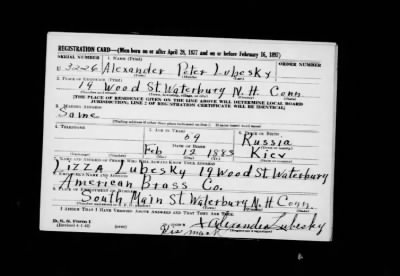 REGISTRATION CARD—(Men born on or after April 28, 1877 and on or before February 16, 1897)
SERIAL NUMBER 1. NAME (Print) ORDER NUMBER
U 3226 Alexander Peter Lubesky
2. PLACE OF RESIDENCE (Print)
19 Wood St. Waterbury N.H. Conn.
[THE PLACE OF RESIDENCE GIVEN ON THE LINE ABOVE WILL DETERMINE LOCAL BOARD
JURISDICTION; LINE 2 OF REGISTRATION CERTIFICATE WILL BE IDENTICAL]
3. MAILING ADDRESS
Same
4. TELEPHONE 5. AGE IN YEARS 6. PLACE OF BIRTH
59 Russia
DATE OF BIRTH
Feb 12 1883 Kiev
7. NAME AND ADDRESS OF PERSON WHO WILL ALWAYS KNOW YOUR ADDRESS
Lizza Lubesky 19 Wood St. Waterbury
8. EMPLOYER'S NAME AND ADDRESS
American Brass Co.
9. PLACE OF EMPLOYMENT OR BUSINESS
South Main St. Waterbury N.H. Conn.
I AFFIRM THAT I HAVE VERIFIED ABOVE ANSWERS AND THAT THEY ARE TRUE.
D. S. S. Form 1
(Revised 4-1-42)
X Alexander Lubesky
His mark